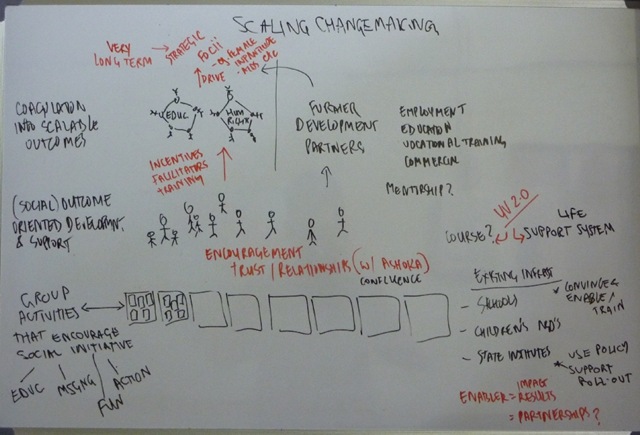 SCALING CHANGEMAKING
VERY
LONG TERM
STRATEGIC
FOCII
- eg. FEMALE
INFANTICIDE
DRIVE
COAGULATION
INTO SCALABLE
OUTCOMES
EDUC
HUM
RIGHTS
FURTHER
DEVELOPMENT
PARTNERS
EMPLOYMENT
EDUCATION
VOCATIONAL TRAINING
COMMERCIAL
MENTORSHIP?
INCENTIVES
FACILITATORS
+ TRAINING
(SOCIAL) OUTCOME
ORIENTED DEVELOPMENT
& SUPPORT
V 2.0
COURSE?
LIFE
SUPPORT SYSTEM
ENCOURAGEMENT
+ TRUST / RELATIONSHIPS (W/ ASHOKA)
CONFLUENCE
GROUP
ACTIVITIES
THAT ENCOURAGE
SOCIAL INITIATIVE
EDUC
MSGNG
FUN
ACTION
EXISTING INFRAST
- SCHOOLS
CONVINCE &
ENABLE / TRAIN
- CHILDREN'S NGO'S
- STATE INSTITUTES
* USE POLICY
SUPPORT
ROLL-OUT
IMPACT
ENABLER = RESULTS
= PARTNERSHIPS?